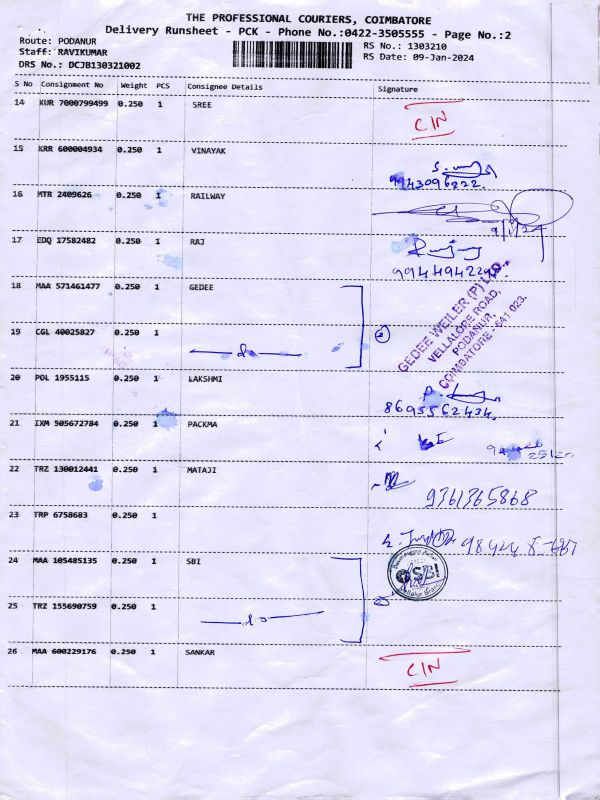 THE PROFESSIONAL COURIERS, COIMBATORE
Delivery Runsheet - PCK - Phone No.:0422-3505555 - Page No.:2
Route: PODANUR
Staff: RAVIKUMAR
DRS No.: DCJB130321002
RS No.: 1303210
RS Date: 09-Jan-2024
S No Consignment No Weight PCS Consignee Details Signature
14 KUR 7000799499 0.250 1 SREE CIN
15 KRR 600004934 0.250 1 VINAYAK
9943096222.
16 MTR 2409626 0.250 1 RAILWAY
9/1/24
17 EDQ 17582482 0.250 1 RAJ
18 MAA 571461477 0.250 1 GEDEE
GEDEE WEILER (P) LTD.,
VELLALORE ROAD,
PODANUR,
COIMBATORE - 641 023.
19 CGL 40025827 0.250 1 do 2
20 POL 1955115 0.250 1 LAKSHMI
8695562434.
21 IXM 505672784 0.250 1 PACKMA
22 TRZ 130012441 0.250 1 MATAJI
9361365868
23 TRP 6758683 0.250 1
24 MAA 105485135 0.250 1 SBI
SBI
25 TRZ 155690759 0.250 1 do
26 MAA 600229176 0.250 1 SANKAR CIN